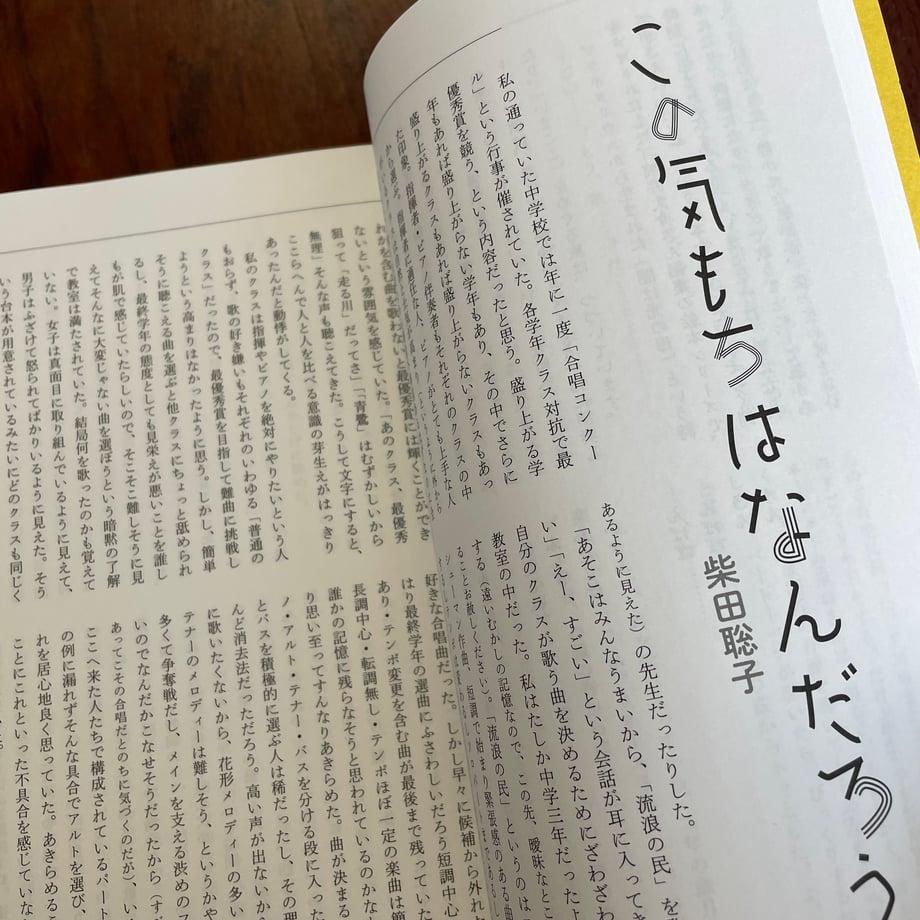 この気もちはなんだろう
柴田聡子
私の通っていた中学校では年に一度「合唱コンクー
ル」という行事が催されていた。各学年クラス対抗で最
優秀賞を競う、という内容だったと思う。盛り上がる学
年もあれば盛り上がらない学年もあり、その中でさらに
盛り上がるクラスもあれば盛り上がらないクラスもあっ
た印象。指揮者・ピアノ伴奏者もそれぞれのクラスの中
から選ぶ。指揮者に適任な人、ピアノがとても上手な人
あるように見えた）の先生だったりした。
「あそこはみんなうまいから、「流浪の民」を
い」「えー、すごい」という会話が耳に入ってき
自分のクラスが歌う曲を決めるためにざわざわ
教室の中だった。私はたしか中学三年だったよ
する（遠いむかしの記憶なので、この先、曖昧なとこ
ることお赦しください）。「流浪の民」というのは
シューマン作曲、短調で始まり緊張感のある曲
れかを含む曲を歌わないと最優秀賞には輝くことができ
ないという雰囲気を感じていた。「あのクラス、最優秀
狙って「走る川」だってさ」「「青鷺」はむずかしいから
無理」そんな声も聴こえてきた。こうして文字にすると、
ここらへんで人と人を比べる意識の芽生えがはっきり
あったんだと動悸がしてくる。
私のクラスは指揮やピアノを絶対にやりたいという人
もおらず、歌の好き嫌いもそれぞれのいわゆる「普通の
クラス」だったので、最優秀賞を目指して難曲に挑戦し
ようという高まりはなかったように思う。しかし、簡単
そうに聴こえる曲を選ぶと他クラスにちょっと舐められ
るし、最終学年の態度としても見栄えが悪いことを誰し
もが肌で感じていたらしいので、そこそこ難しそうに見
えてそんなに大変じゃない曲を選ぼうという暗黙の了解
で教室は満たされていた。結局何を歌ったのかも覚えて
いない。女子は真面目に取り組んでいるように見えて、
男子はふざけて怒られてばかりいるように見えた。そう
いう台本が用意されているみたいにどのクラスも同じく
好きな合唱曲だった。しかし早々に候補から外れ
はり最終学年の選曲にふさわしいだろう短調中心
あり・テンポ変更を含む曲が最後まで残っていた
長調中心・転調無し・テンポほぼ一定の楽曲は簡
誰かの記憶に残らなそうと思われているのかな
り思い至ってすんなりあきらめた。曲が決まる
ノ・アルト・テナー・バスを分ける段に入った
とバスを積極的に選ぶ人は稀だったし、その理
んど消去法だっただろう。高い声が出ないか
に歌いたくないから、花形メロディーの多い
テナーのメロディーは難しそう、というかや
多くて争奪戦だし、メインを支える渋めの
いのでなんだかこなせそうだったから（す
あってこその合唱だとのちに気づくのだが、い
ここへ来た人たちで構成されているパート
の例に漏れずそんな具合でアルトを選び、
れを居心地良く思っていた。あきらめる
ことにこれといった不具合を感じていな